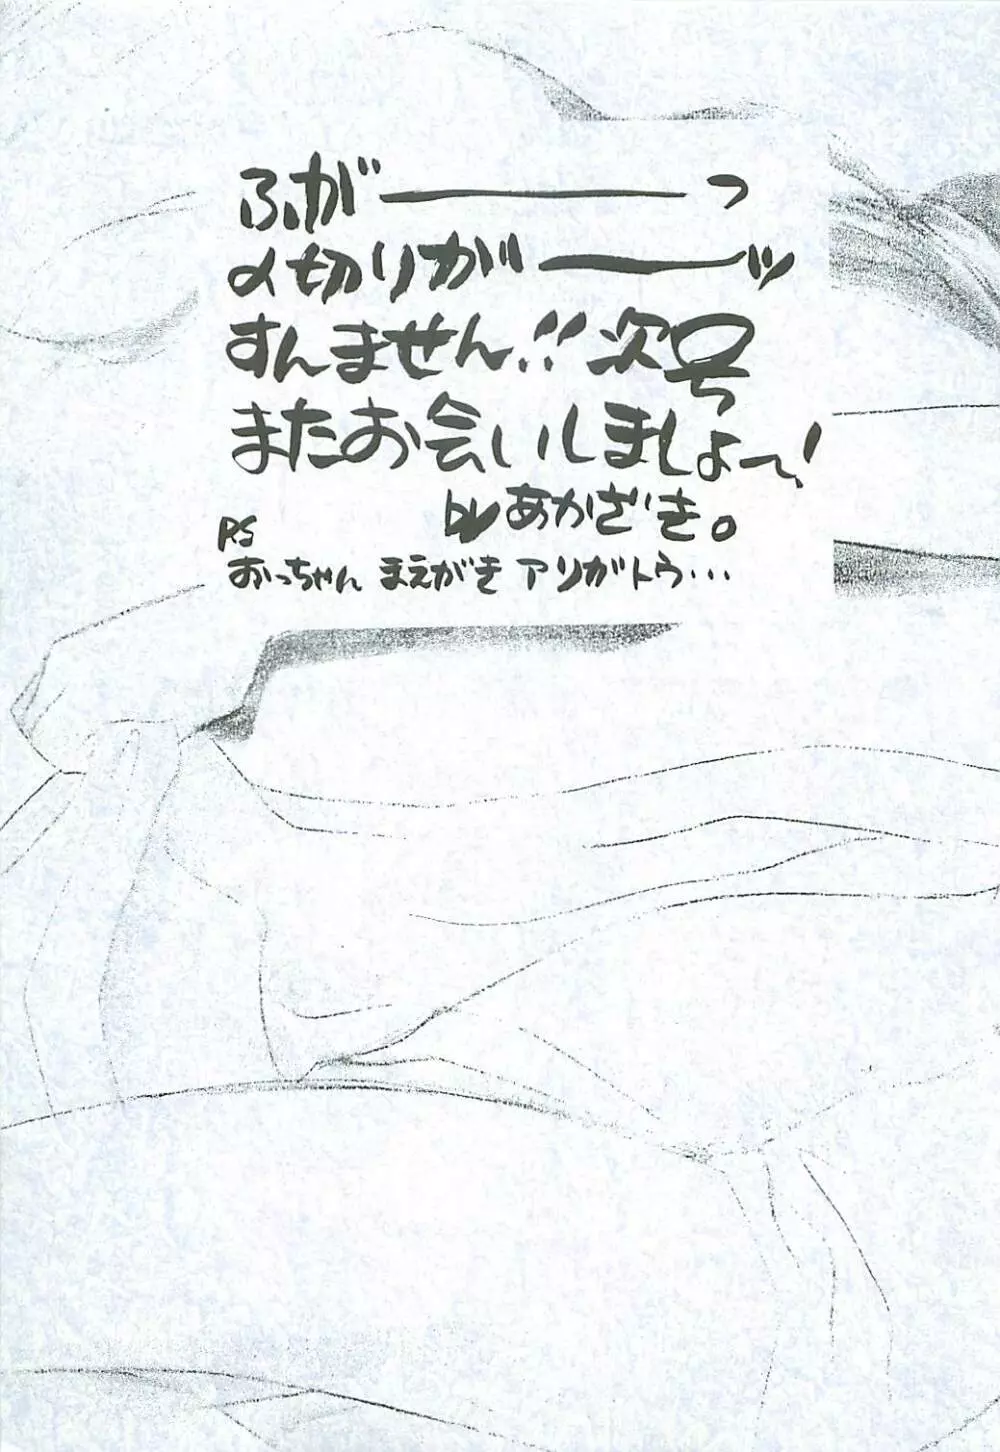 ふがーーーっ
〆切りがーーッ
すんません!!次号
またお会いしましょー!
byあかざき。
PS
おっちゃん まえがき アリガトウ・・・